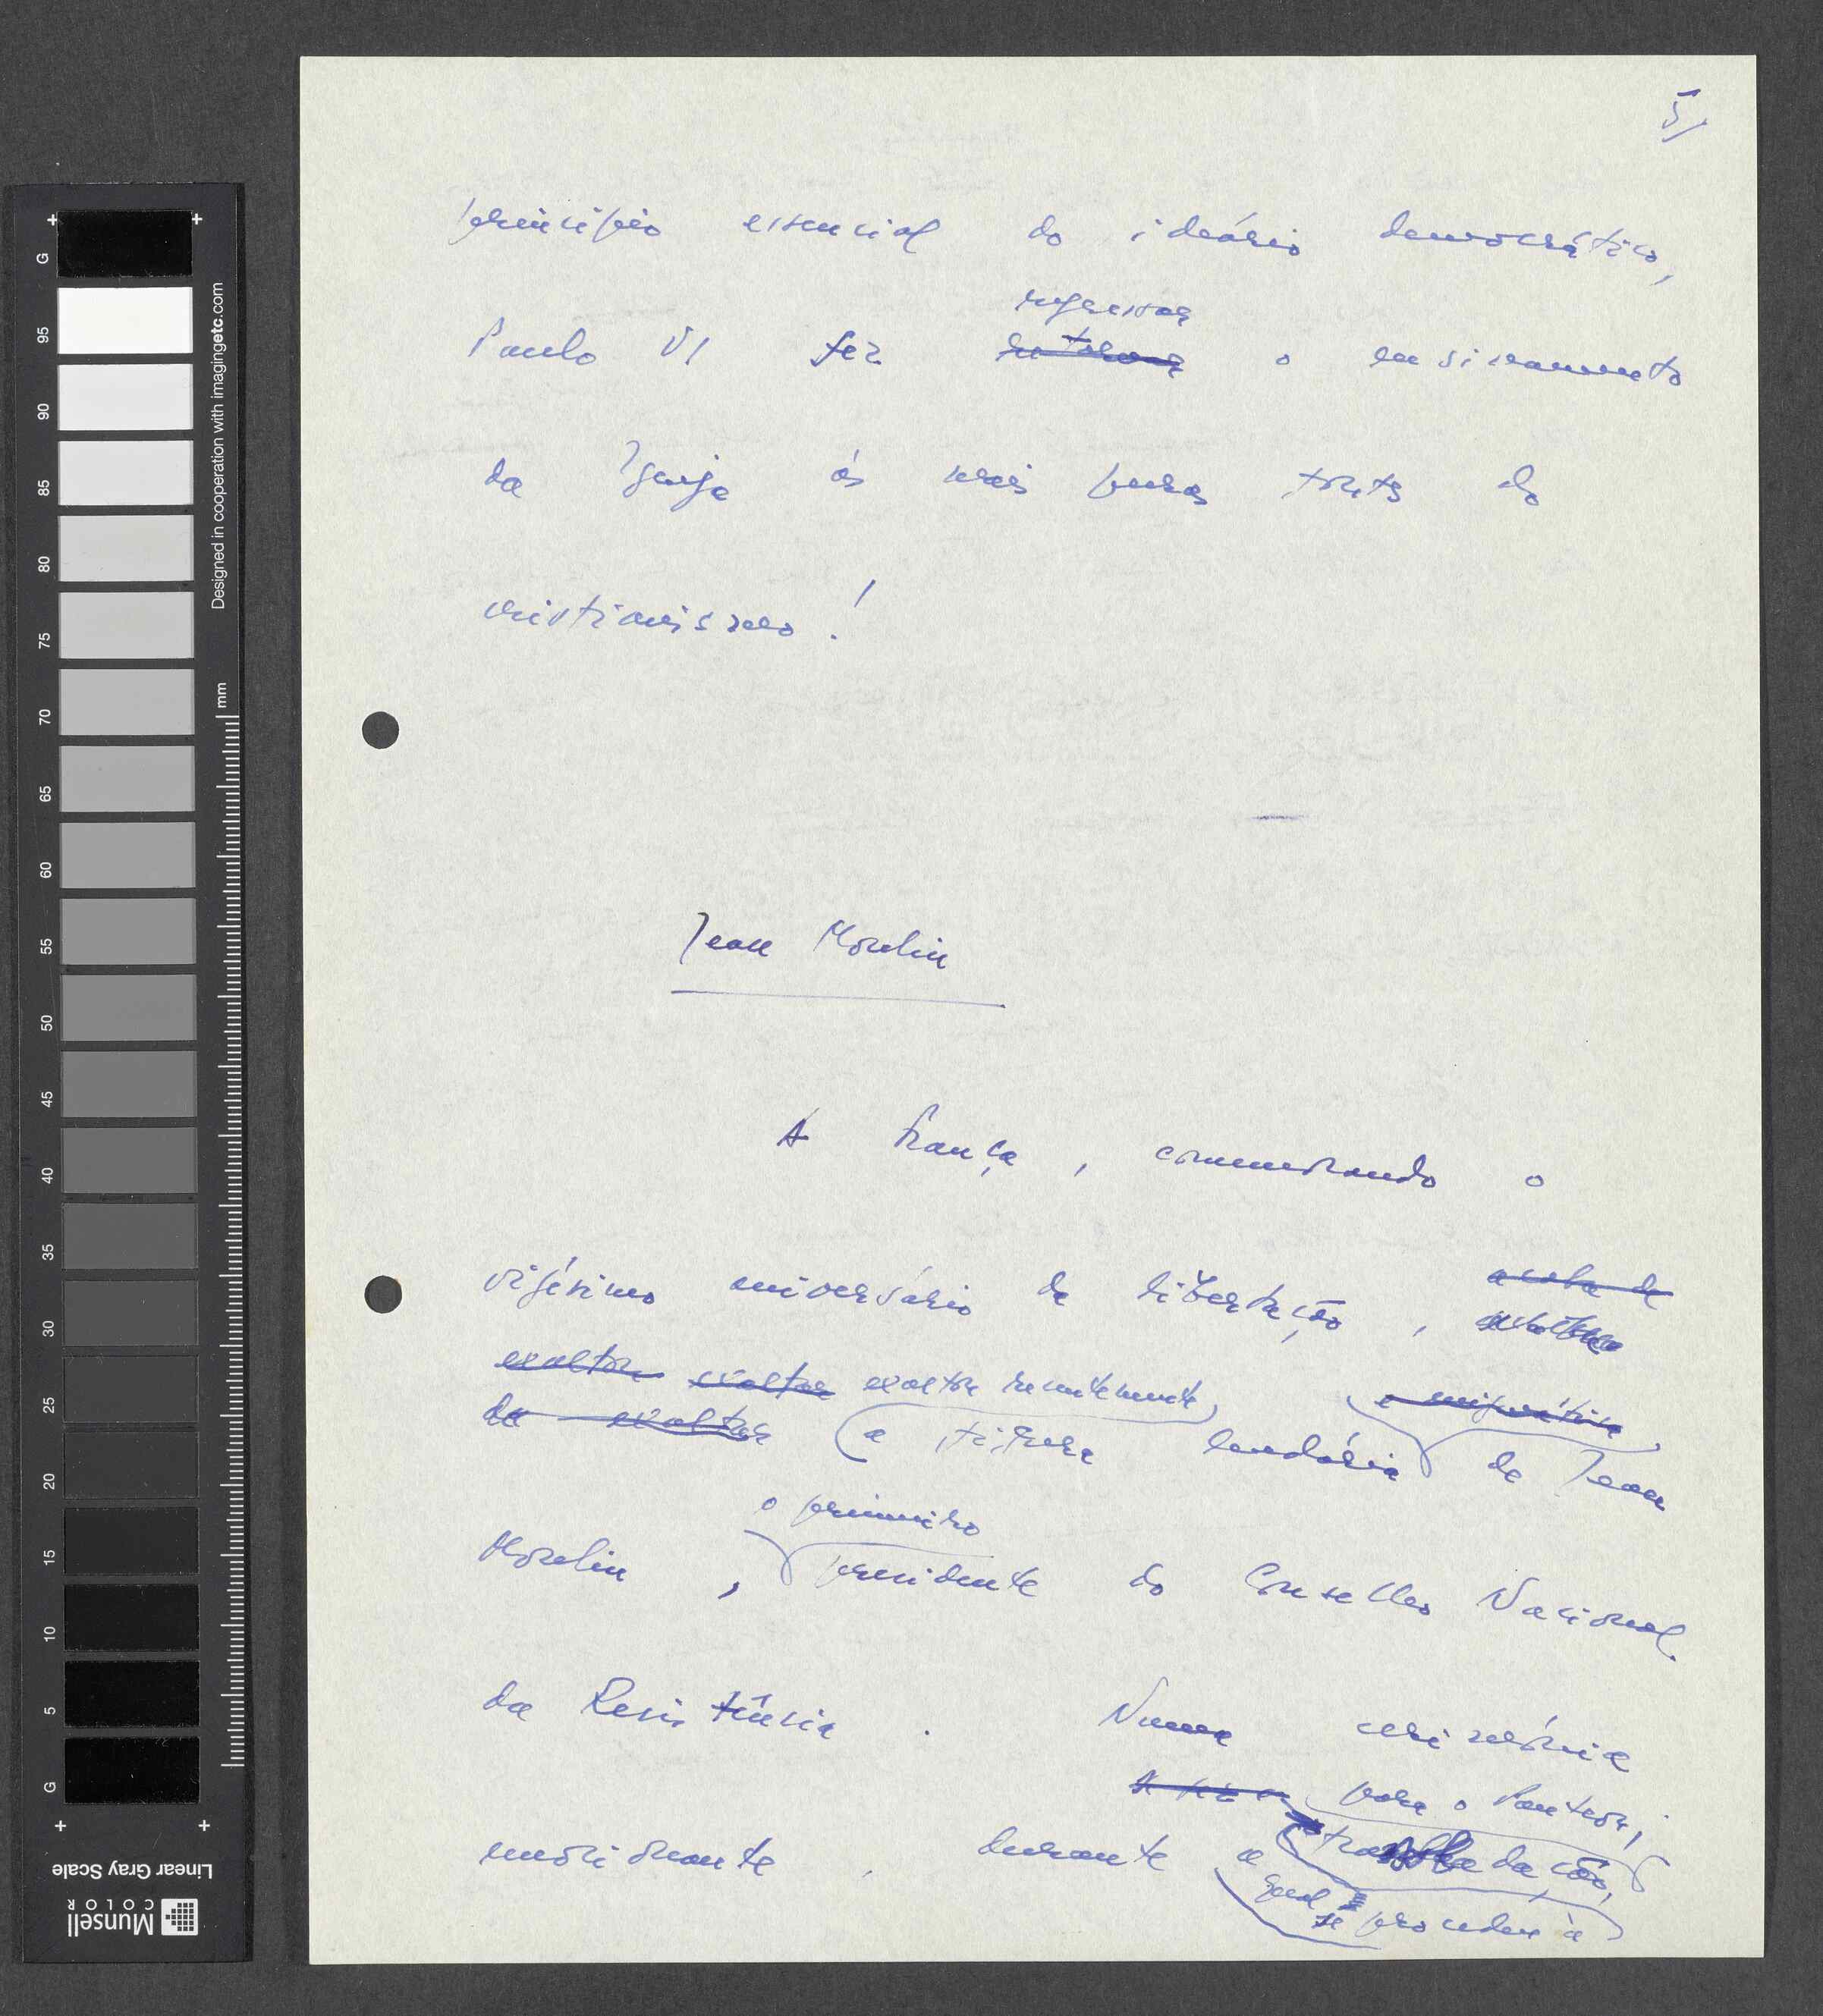 5/
princípio essencial do ideário democrático,
regressar
Paulo VI fez retornar o ensinamento
da Igreja às mais puras fontes do
cristianismo!
Jean Moulin
A França, comemorando o
acaba de
vigésimo aniversário da libertação,
exaltou exaltar exaltou recentemente
de exaltar a figura lendária de Jean
o primeiro
Moulin, presidente do Conselho Nacional
da Resistência. Numa cerimónia
para o Panteon,
emocionante, durante a trasladação,
qual se procedeu à
G 95 90 85 80 75 70 65 60 55 50 45 40 35 30 25 20 15 10 5 G
Designed in cooperation with imagingetc.com
mm
Linear Gray Scale
Munsell
COLOR